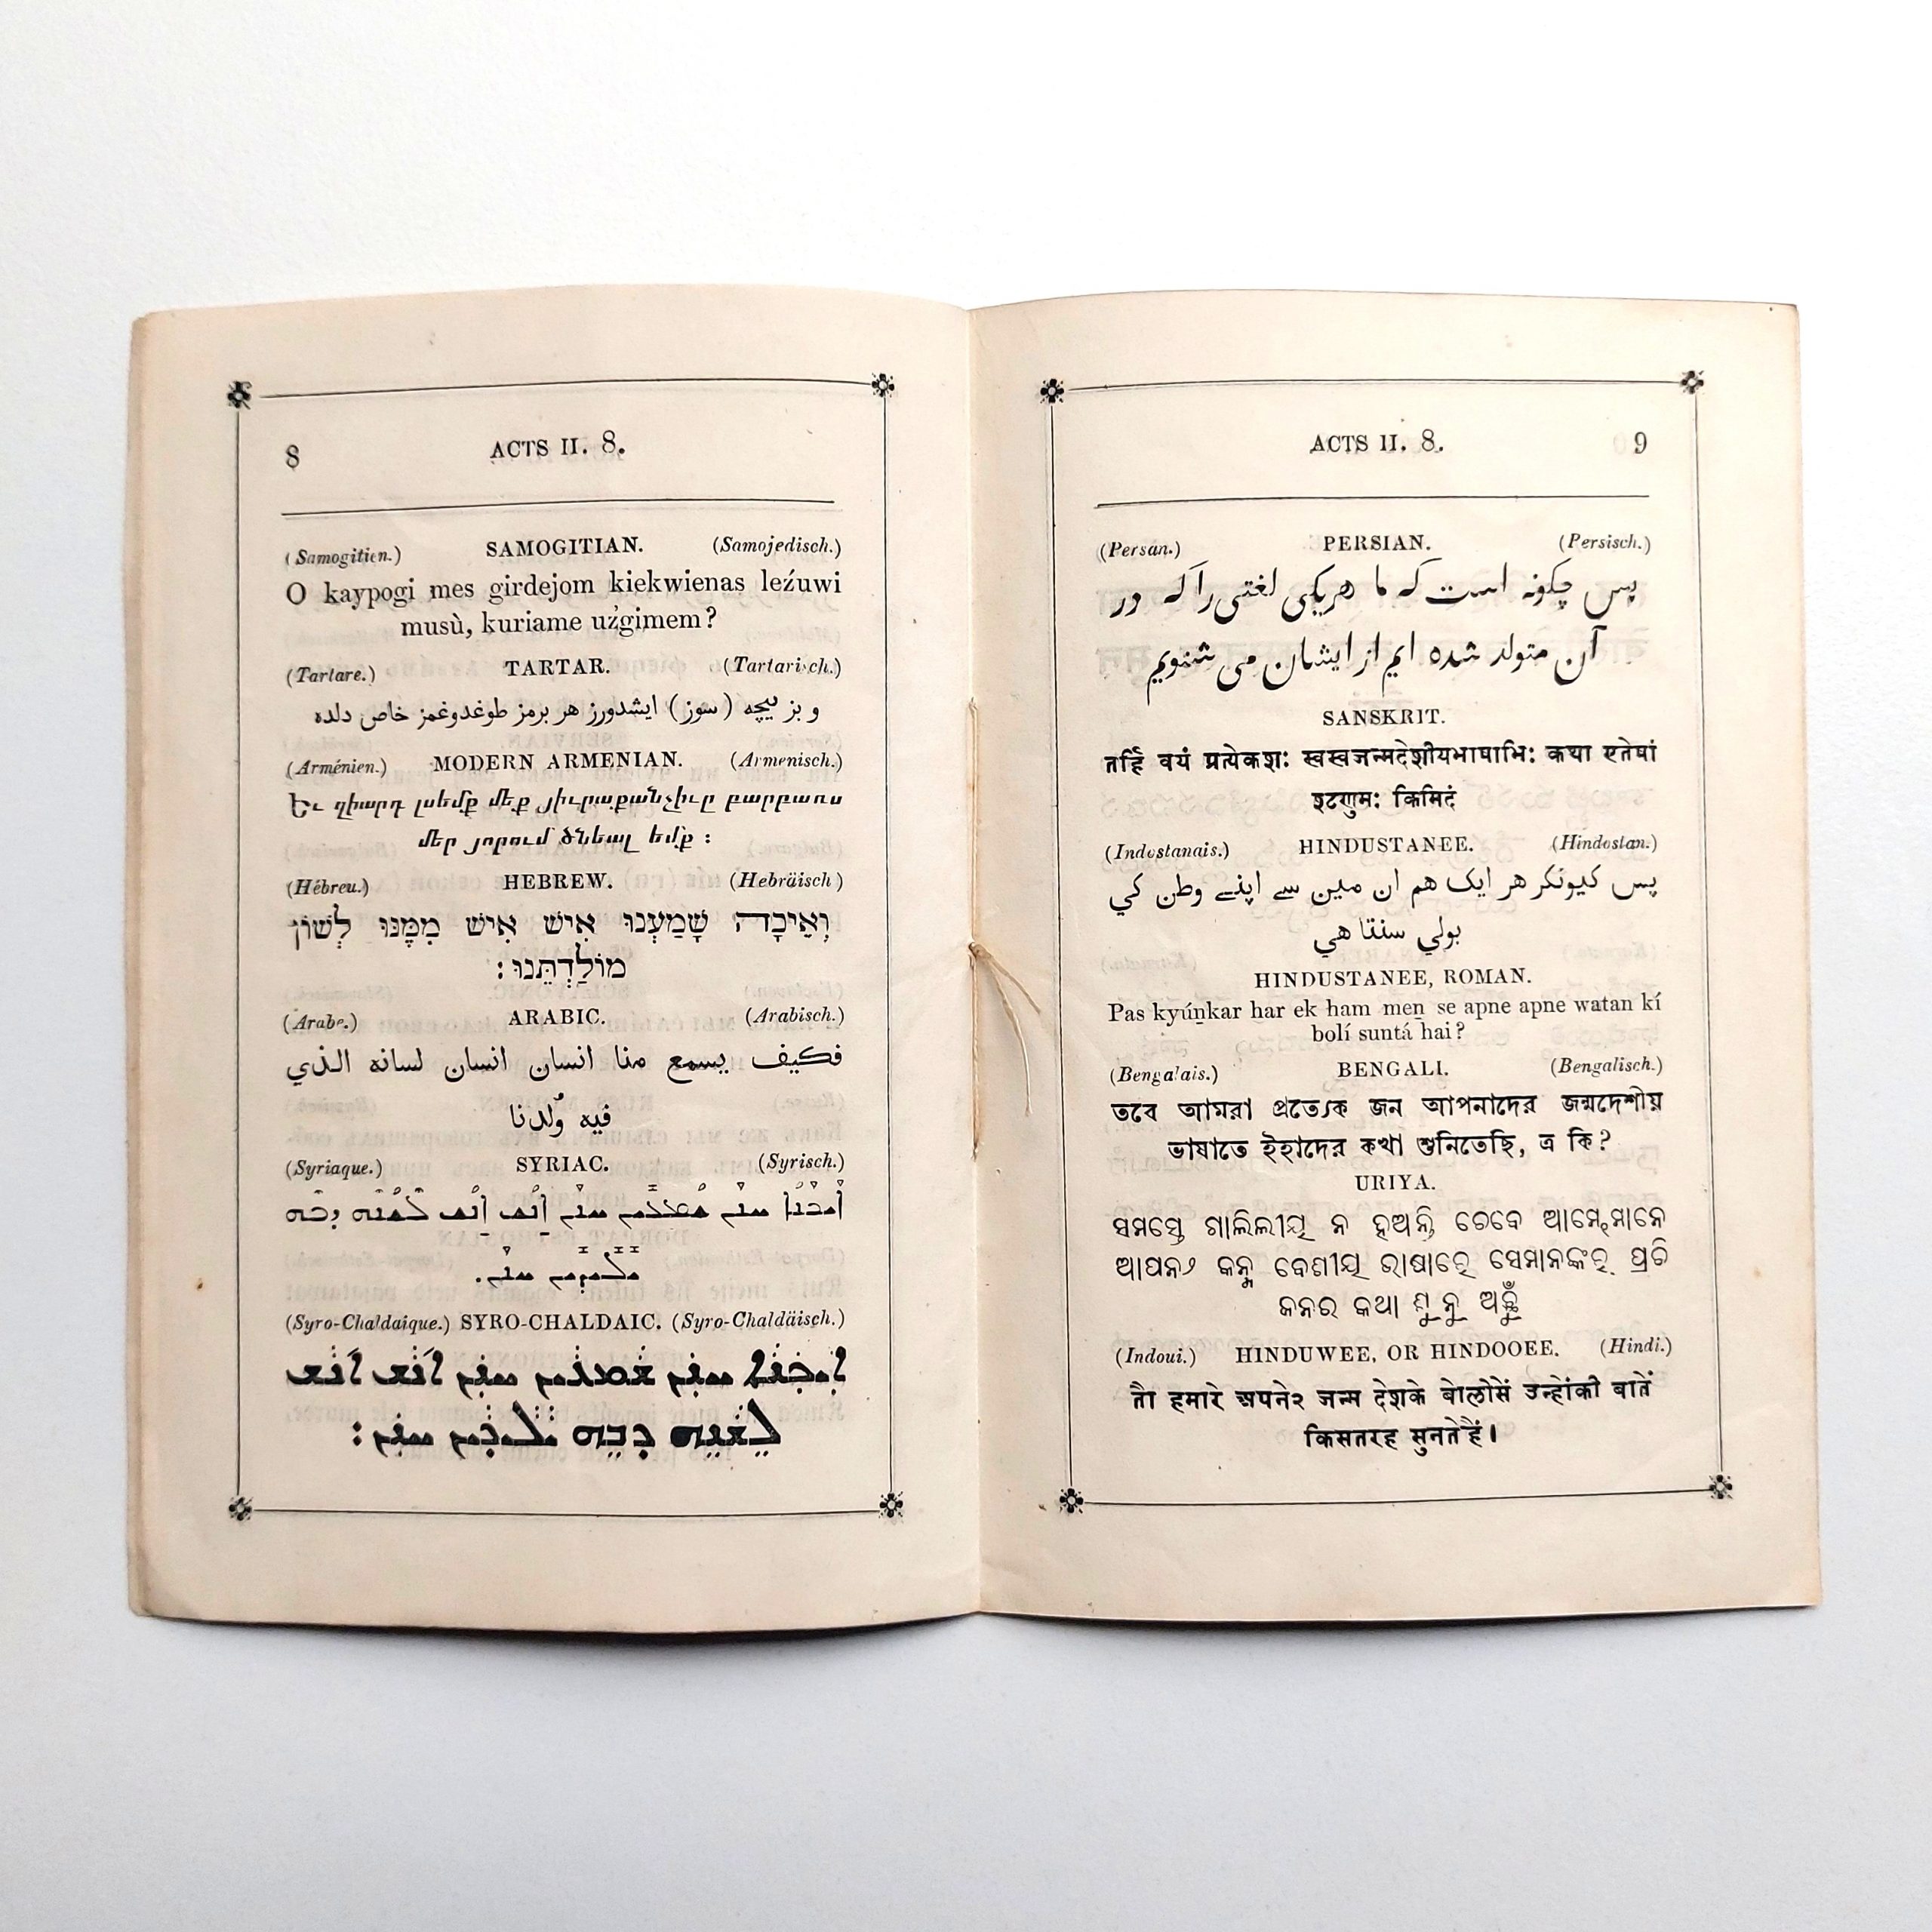 8 ACTS II. 8.
(Samogitien.) SAMOGITIAN. (Samojedisch.)
O kaypogi mes girdejom kiekwienas leźuwi
musù, kuriame użgimem?
(Tartare.) TARTAR. (Tartarisch.)
و بز نيچه (سوز) ايشدورز هر برمز طوغدوغمز خاص دلده
(Arménien.) MODERN ARMENIAN. (Armenisch.)
Եւ զիարդ լսեմք մեք յիւրաքանչիւրը բարբառս
մեր յորում ծնեալ եմք ։
(Hébreu.) HEBREW. (Hebräisch)
וְאֵיכָה שָׁמַעְנוּ אִישׁ אִישׁ מִמֶּנּוּ לְשׁוֹן
מוֹלַדְתֵּנוּ׃
(Arabe.) ARABIC. (Arabisch.)
فكيف يسمع منا انسان انسان لسانه الذي
فيه وُلدنا
(Syriaque.) SYRIAC. (Syrisch.)
ܐܝܟܢܐ ܚܢܢ ܫܡܥܝܢ ܚܢܢ ܐܢܫ ܐܢܫ ܠܫܢܗ ܕܒܗ
ܝܠܝܕܝܢ ܚܢܢ.
(Syro-Chaldaique.) SYRO-CHALDAIC. (Syro-Chaldäisch.)
ACTS II. 8. 9
(Persan.) PERSIAN. (Persisch.)
پس چگونه است که ما هریکی لغتی را که در
آن متولد شده ایم از ایشان می شنویم
SANSKRIT.
तर्हि वयं प्रत्येकशः स्वस्वजन्मदेशीयभाषाभिः कथा एतेषां
शृणुमः किमिदं
(Indostanais.) HINDUSTANEE. (Hindostan.)
پس کیونکر هر ایک هم ان مین سے اپنے وطن کي
بولي سنتا هي
HINDUSTANEE, ROMAN.
Pas kyúṉkar har ek ham meṉ se apne apne watan kí
bolí suntá hai?
(Bengalais.) BENGALI. (Bengalisch.)
তবে আমরা প্রত্যেক জন আপনাদের জন্মদেশীয়
ভাষাতে ইহাদের কথা শুনিতেছি, এ কি?
URIYA.
ସମସ୍ତେ ଗାଲିଲୀୟ ନ ହଅନ୍ତି ତେବେ ଆମ୍ଭେମାନେ
ଆପନ୨ ଜନ୍ମ ଦେଶୀୟ ଭାଷାରେ ସେମାନଙ୍କର ପ୍ରତି
ଜନର କଥା ଶୁନୁ ଅଛୁଁ
(Indoui.) HINDUWEE, OR HINDOOEE. (Hindi.)
तो हमारे अपने२ जन्म देशके बोलीसें उन्होंकी बातें
किसतरह सुनतेहैं।